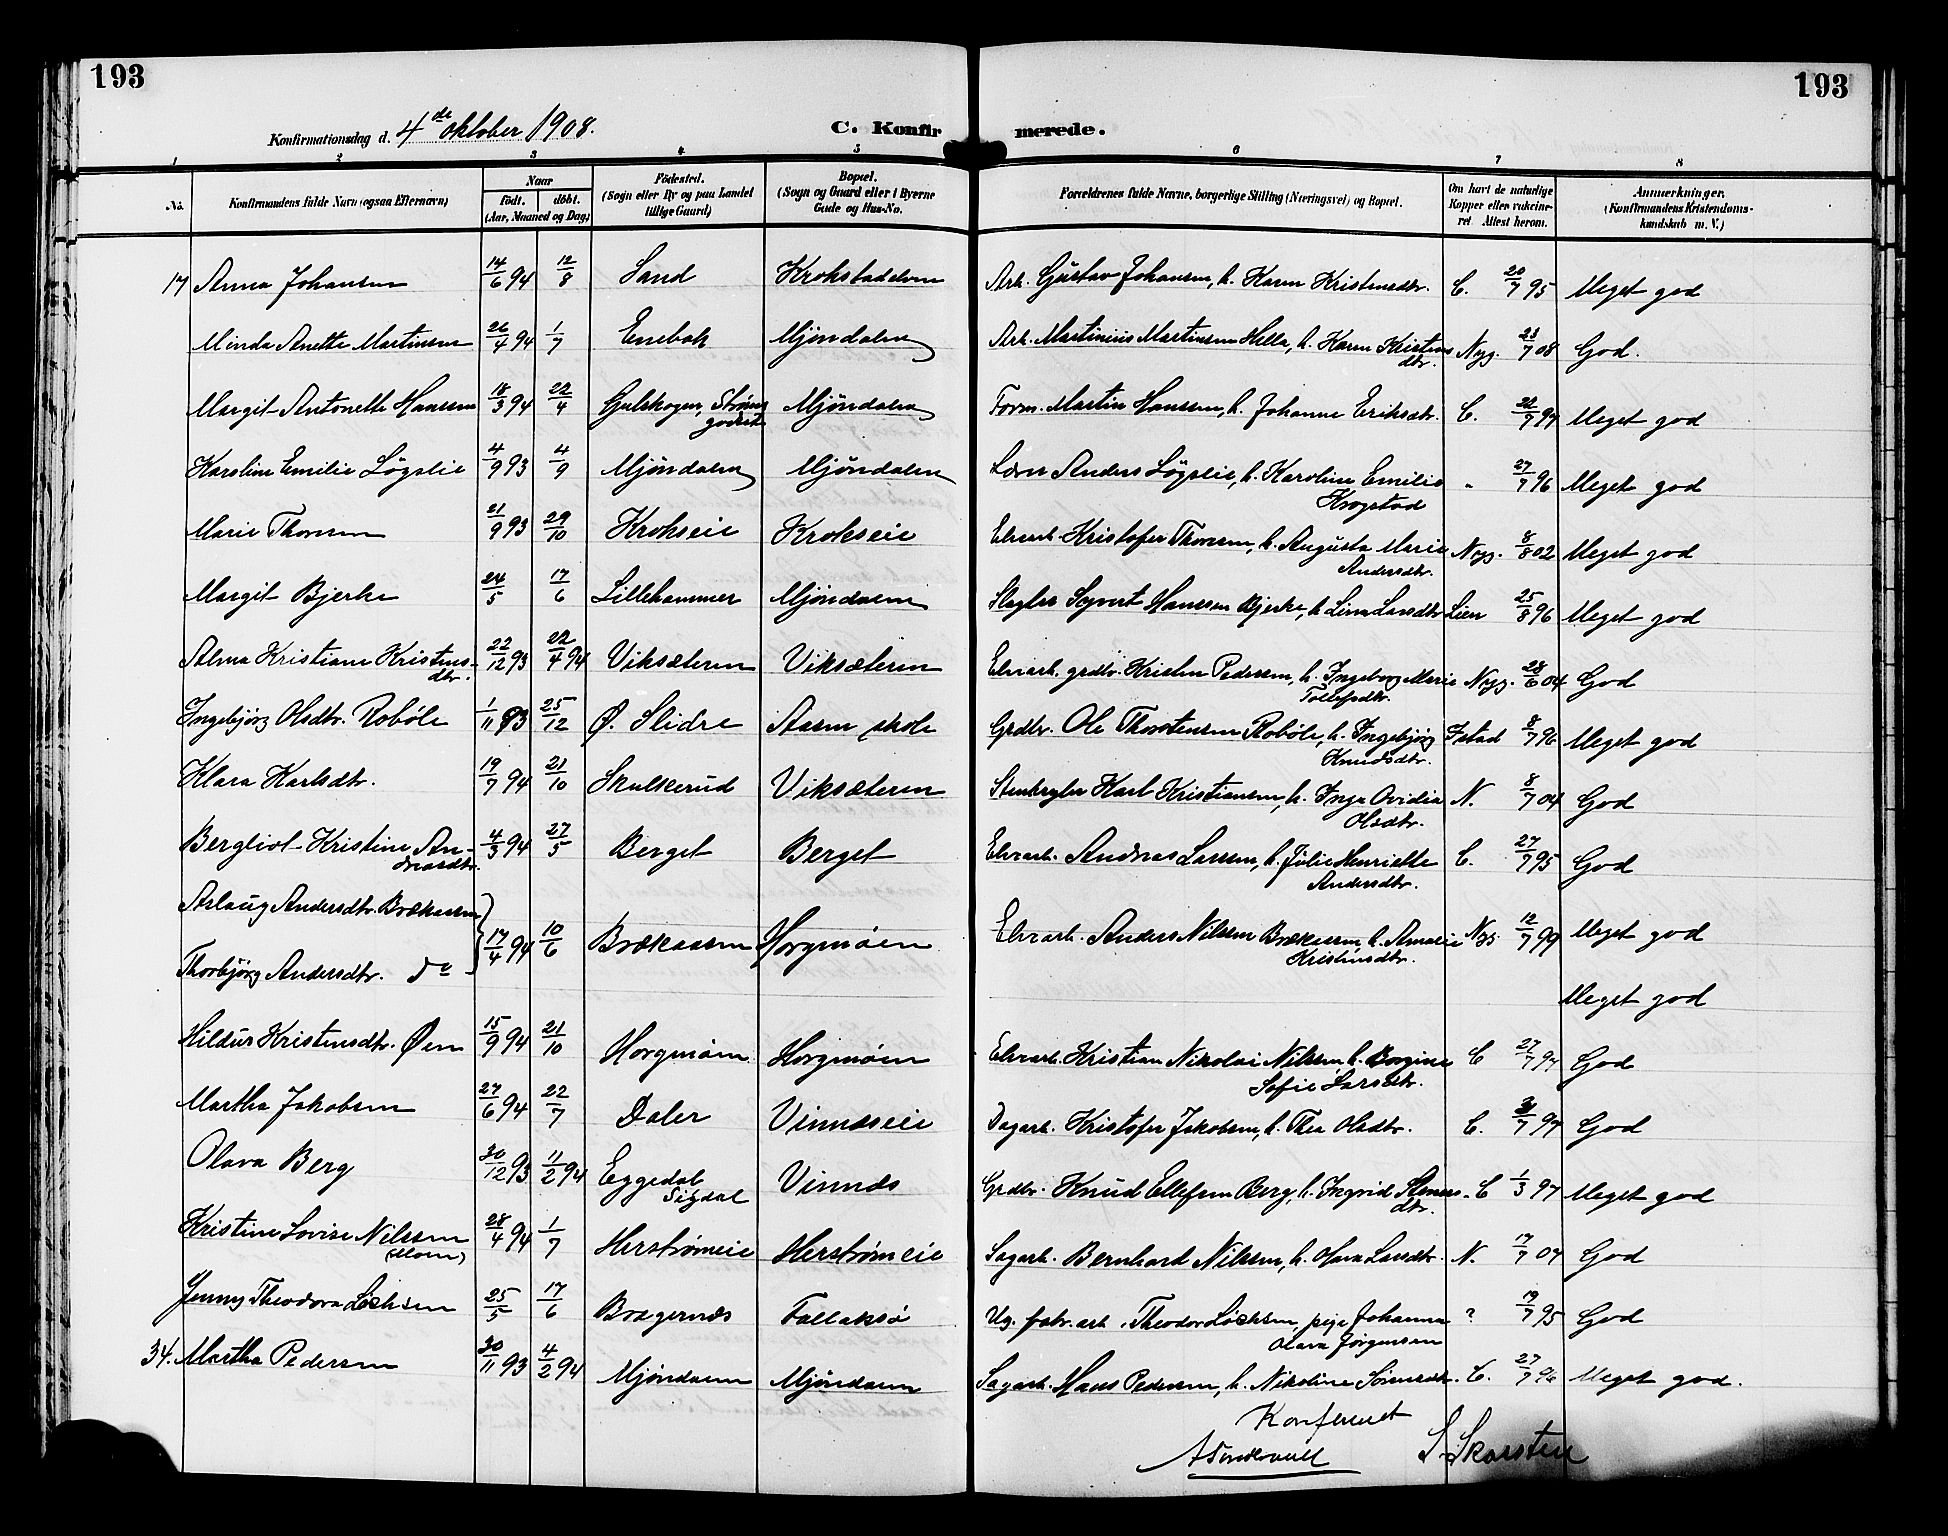 193
193
Konfirmationsdag d. 4de oktober 1908.
C. Konfirmerede.
1 2 3 4 5 6 7 8
No. Konfirmandens fulde Navn (ogsaa Efternavn) Naar født. døbt. (Aar, Maaned og Dag) Fødested. (Sogn eller By og paa Landet tillige Gaard) Bopæl. (Sogn og Gaard eller i Byerne Gade og Hus-No. Forældrenes fulde Navne, borgerlige Stilling (Næringsvei) og Bopæl. Om havt de naturlige Kopper eller vakcineret Attest herom. Anmerkninger. (Konfirmandens Kristendomskundskab m. V.)
17 Anna Johansen 14/6 94 12/8 Sand Krokstadelven Arb. Gustav Johansen, h. Karen Kristensdtr. C. 20/7 95 Meget god
Minda Anette Martinsen 26/4 94 1/7 Enebak Mjøndalen Arb. Martinius Martinsen Hella, h. Karen Kristensdtr. Nyg. 23/7 08 God.
Margit Antonette Hanssen 18/3 94 22/4 Gulskogen, Strømsgodset Mjøndalen Form. Martin Hanssen, h. Johanne Eriksdtr. C. 22/7 97 Meget god
Karoline Emilie Løgslie 4/9 93 4/9 Mjøndalen Mjøndalen Anders Løgslie, h. Karoline Emilie Krogstad " 27/7 96 Meget god
Marie Thoresen 21/9 93 29/10 Krokseie Krokseie Elvearb. Kristofer Thoresen, h. Augusta Marie Andersdtr. Nyg. 8/8 02 Meget god
Margit Bjerke 24/5 17/6 Lillehammer Mjøndalen Slagter Syvert Hanssen Bjerke, h. Lina Larsdtr. Lien 25/8 96 Meget god
Alma Kristiane Kristensdtr. 22/12 93 22/4 94 Viksæteren Viksæteren Elvearb. grdbr. Kristen Pedersen, h. Ingeborg Marie Tollefsdtr. Nyg. 28/6 04 God
Ingebjørg Olsdtr. Robøle 1/11 93 25/12 Ø. Slidre Aasen skole Grdbr. Ole Thorstensen Robøle, h. Ingebjørg Knudsdtr. Istad 8/7 96 Meget god
Klara Karlsdtr. 19/7 94 21/10 Skulkerud Viksæteren Stenbryter Karl Kristiansen, h. Inga Ovidia Olsdtr. N. 8/7 04 God
Bergliot Kristine Andreasdtr. 4/3 94 27/5 Berget Berget Elvearb. Andreas Larssen, h. Julie Henriette Andersdtr. C. 27/7 95 God
Aslaug Andersdtr. Brækaasen } 17/4 94 10/6 Brækaasen Horgmoen Elvearb. Anders Nilssen Brækaasen, h. Amalie Kristensdtr. Nyg. 12/7 99 Meget god
Thorbjørg Andersdtr. do Meget god
Hildur Kristensdtr. Øen 15/9 94 21/10 Horgmoen Horgmoen Elvearb. Kristian Nikolai Nilssen, h. Borgine Sofie Larsdtr. C 27/7 97 God
Martha Jakobsen 27/6 94 22/7 Daler Vinnæseie Dagarb. Kristofer Jakobsen, h. Thea Olsdtr. C. 7 97 God
Olava Berg 30/12 93 11/2 94 Eggedal Sigdal Vinnæs Grdbr. Knud Ellefsen Berg, h. Ingrid Stenersdtr. C 1/3 97 Meget god
Kristine Lovise Nilssen (Moen) 28/4 94 1/7 Herstrømeie Herstrømeie Sagarb. Bernhard Nilssen, h. Olava Larsdtr. N. 17/7 07 God
Jenny Theodora Løchsen 25/5 17/6 Bragernæs Tollaksø Ug. fabr. arb. Theodor Løchsen, pige Johanna Olava Jørgensen ? 19/7 95 God
34. Martha Pedersen 30/11 93 4/2 94 Mjøndalen Mjøndalen Sagarb. Hans Pedersen, h. Nikoline Sørensdtr. C. 27/7 96 Meget god.
Konfereret
S. Skarsten